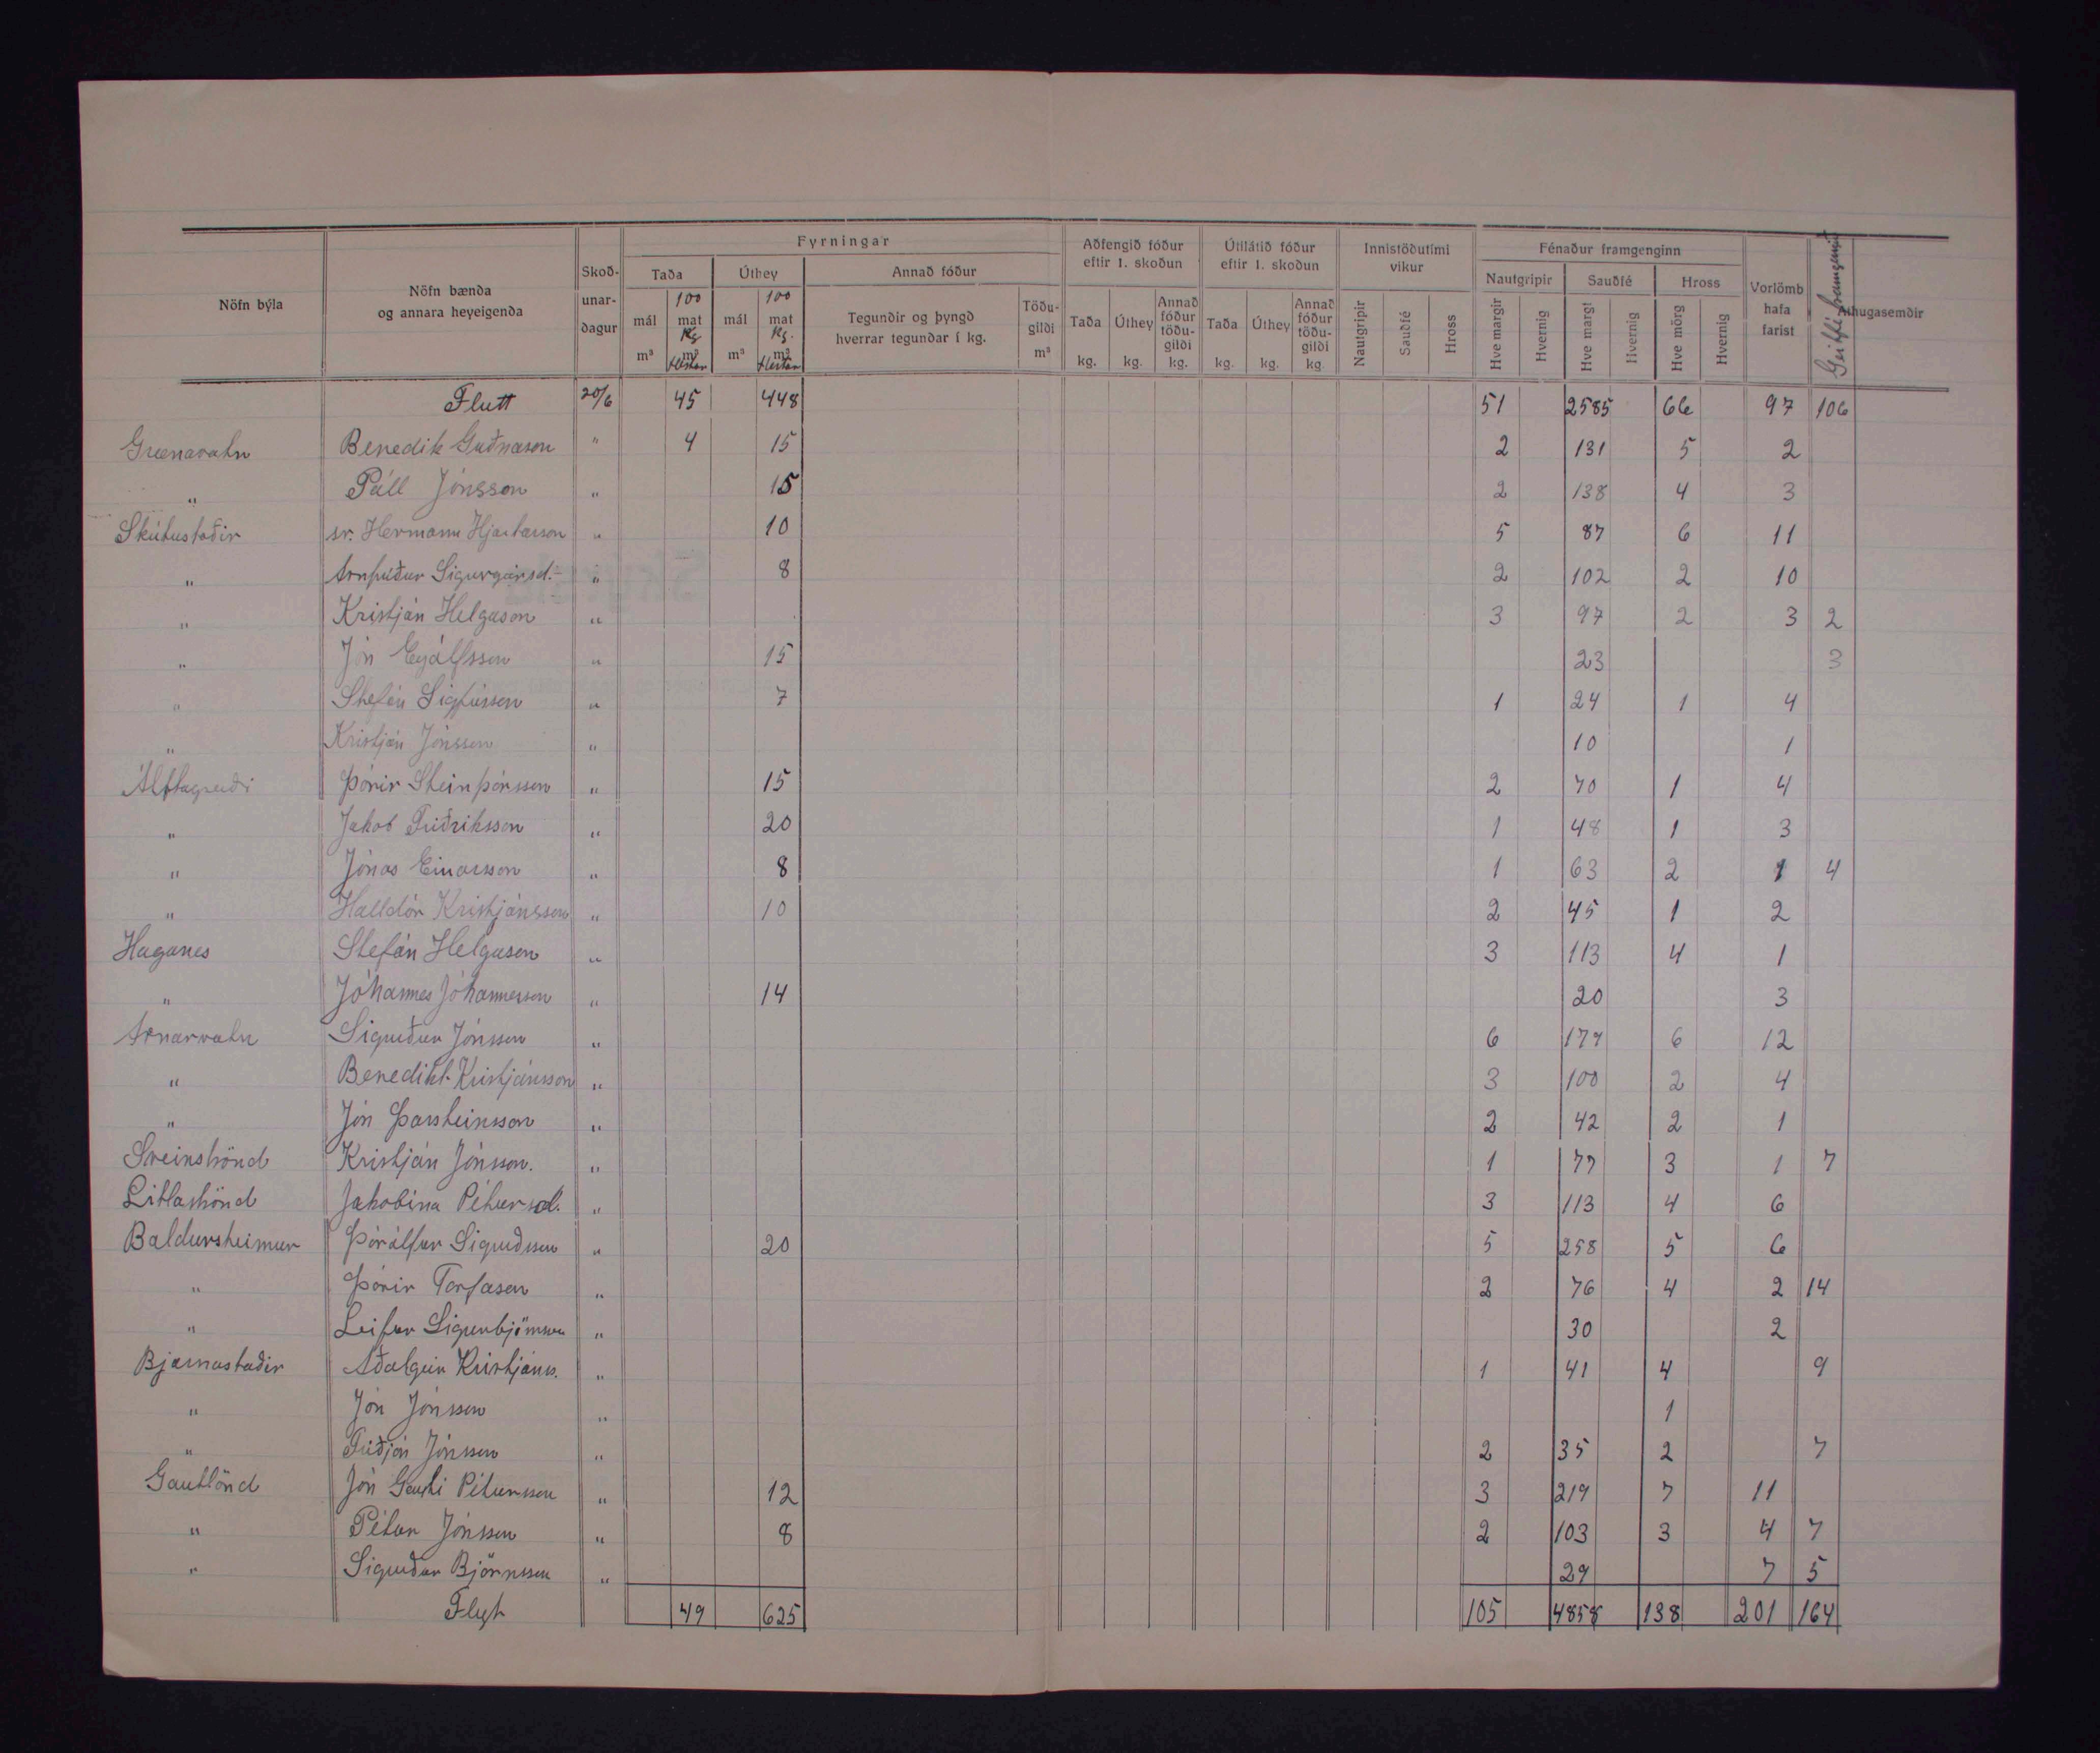 Fyrningar
Aðfengið fóður eftir 1. skoðun
Útilátið fóður eftir 1. skoðun
Innistöðutími vikur
Fénaður framgenginn
Nöfn býla
Nöfn bænda og annara heyeigenda
Skoð-unar-dagur
Taða
Úthey
Annað fóður
Nautgripir
Sauðfé
Hross
Vorlömb hafa farist
Geitfé framgengið
Athugasemdir
mál m³
100 mat Kg m³ Hestar
mál m³
100 mat Kg. m³ Hestar
Tegundir og þyngd hverrar tegundar í kg.
Töðu-gildi m³
Taða kg.
Úthey kg.
Annað fóður töðu-gildi kg.
Taða kg.
Úthey kg.
Annað fóður töðu-gildi kg.
Nautgripir
Sauðfé
Hross
Hve margir
Hvernig
Hve margt
Hvernig
Hve mörg
Hvernig
Flutt 20/6 45 448 51 2585 66 97 106
Grænavatn Benedikt Guðnason " 4 15 2 131 5 2
" Páll Jónsson " 15 2 138 4 3
Skútustaðir sr. Hermann Hjartarson " 10 5 87 6 11
" Arnfríður Sigurgeirsd. " 8 2 102 2 10
" Kristján Helgason " 3 97 2 3 2
" Jón Eyjálfsson " 15 23 3
" Stefán Sigfússon " 7 1 24 1 4
" Kristján Jónsson " 10 1
Álftagerði Þórir Steinþórsson " 15 2 70 1 4
" Jakob Friðriksson " 20 1 48 1 3
" Jónas Einarsson " 8 1 63 2 1 4
" Halldór Kristjánsson " 10 2 45 1 2
Haganes Stefán Helgason " 3 113 4 1
" Jóhannes Jóhannesson " 14 20 3
Arnarvatn Sigurður Jónsson " 6 179 6 12
" Benedikt Kristjánsson " 3 100 2 4
" Jón Þorsteinsson " 2 42 2 1
Sveinströnd Kristján Jónsson. " 1 77 3 1 7
Litlaströnd Jakobína Pétursd. " 3 113 4 6
Baldursheimur Þórálfur Sigurðsson " 20 5 258 5 6
" Þórir Torfason " 2 76 4 2 14
" Leifur Sigurbjörnsson " 30 2
Bjarnastaðir Aðalgeir Kristjánss. " 1 41 4 9
" Jón Jónsson " 1
" Friðjón Jónsson " 2 35 2 7
Gautlönd Jón Gauti Pétursson " 12 3 219 7 11
" Pétur Jónsson " 8 2 103 3 4 7
" Sigurður Björnsson " 29 7 5
Flyt 49 625 105 4858 138 201 164